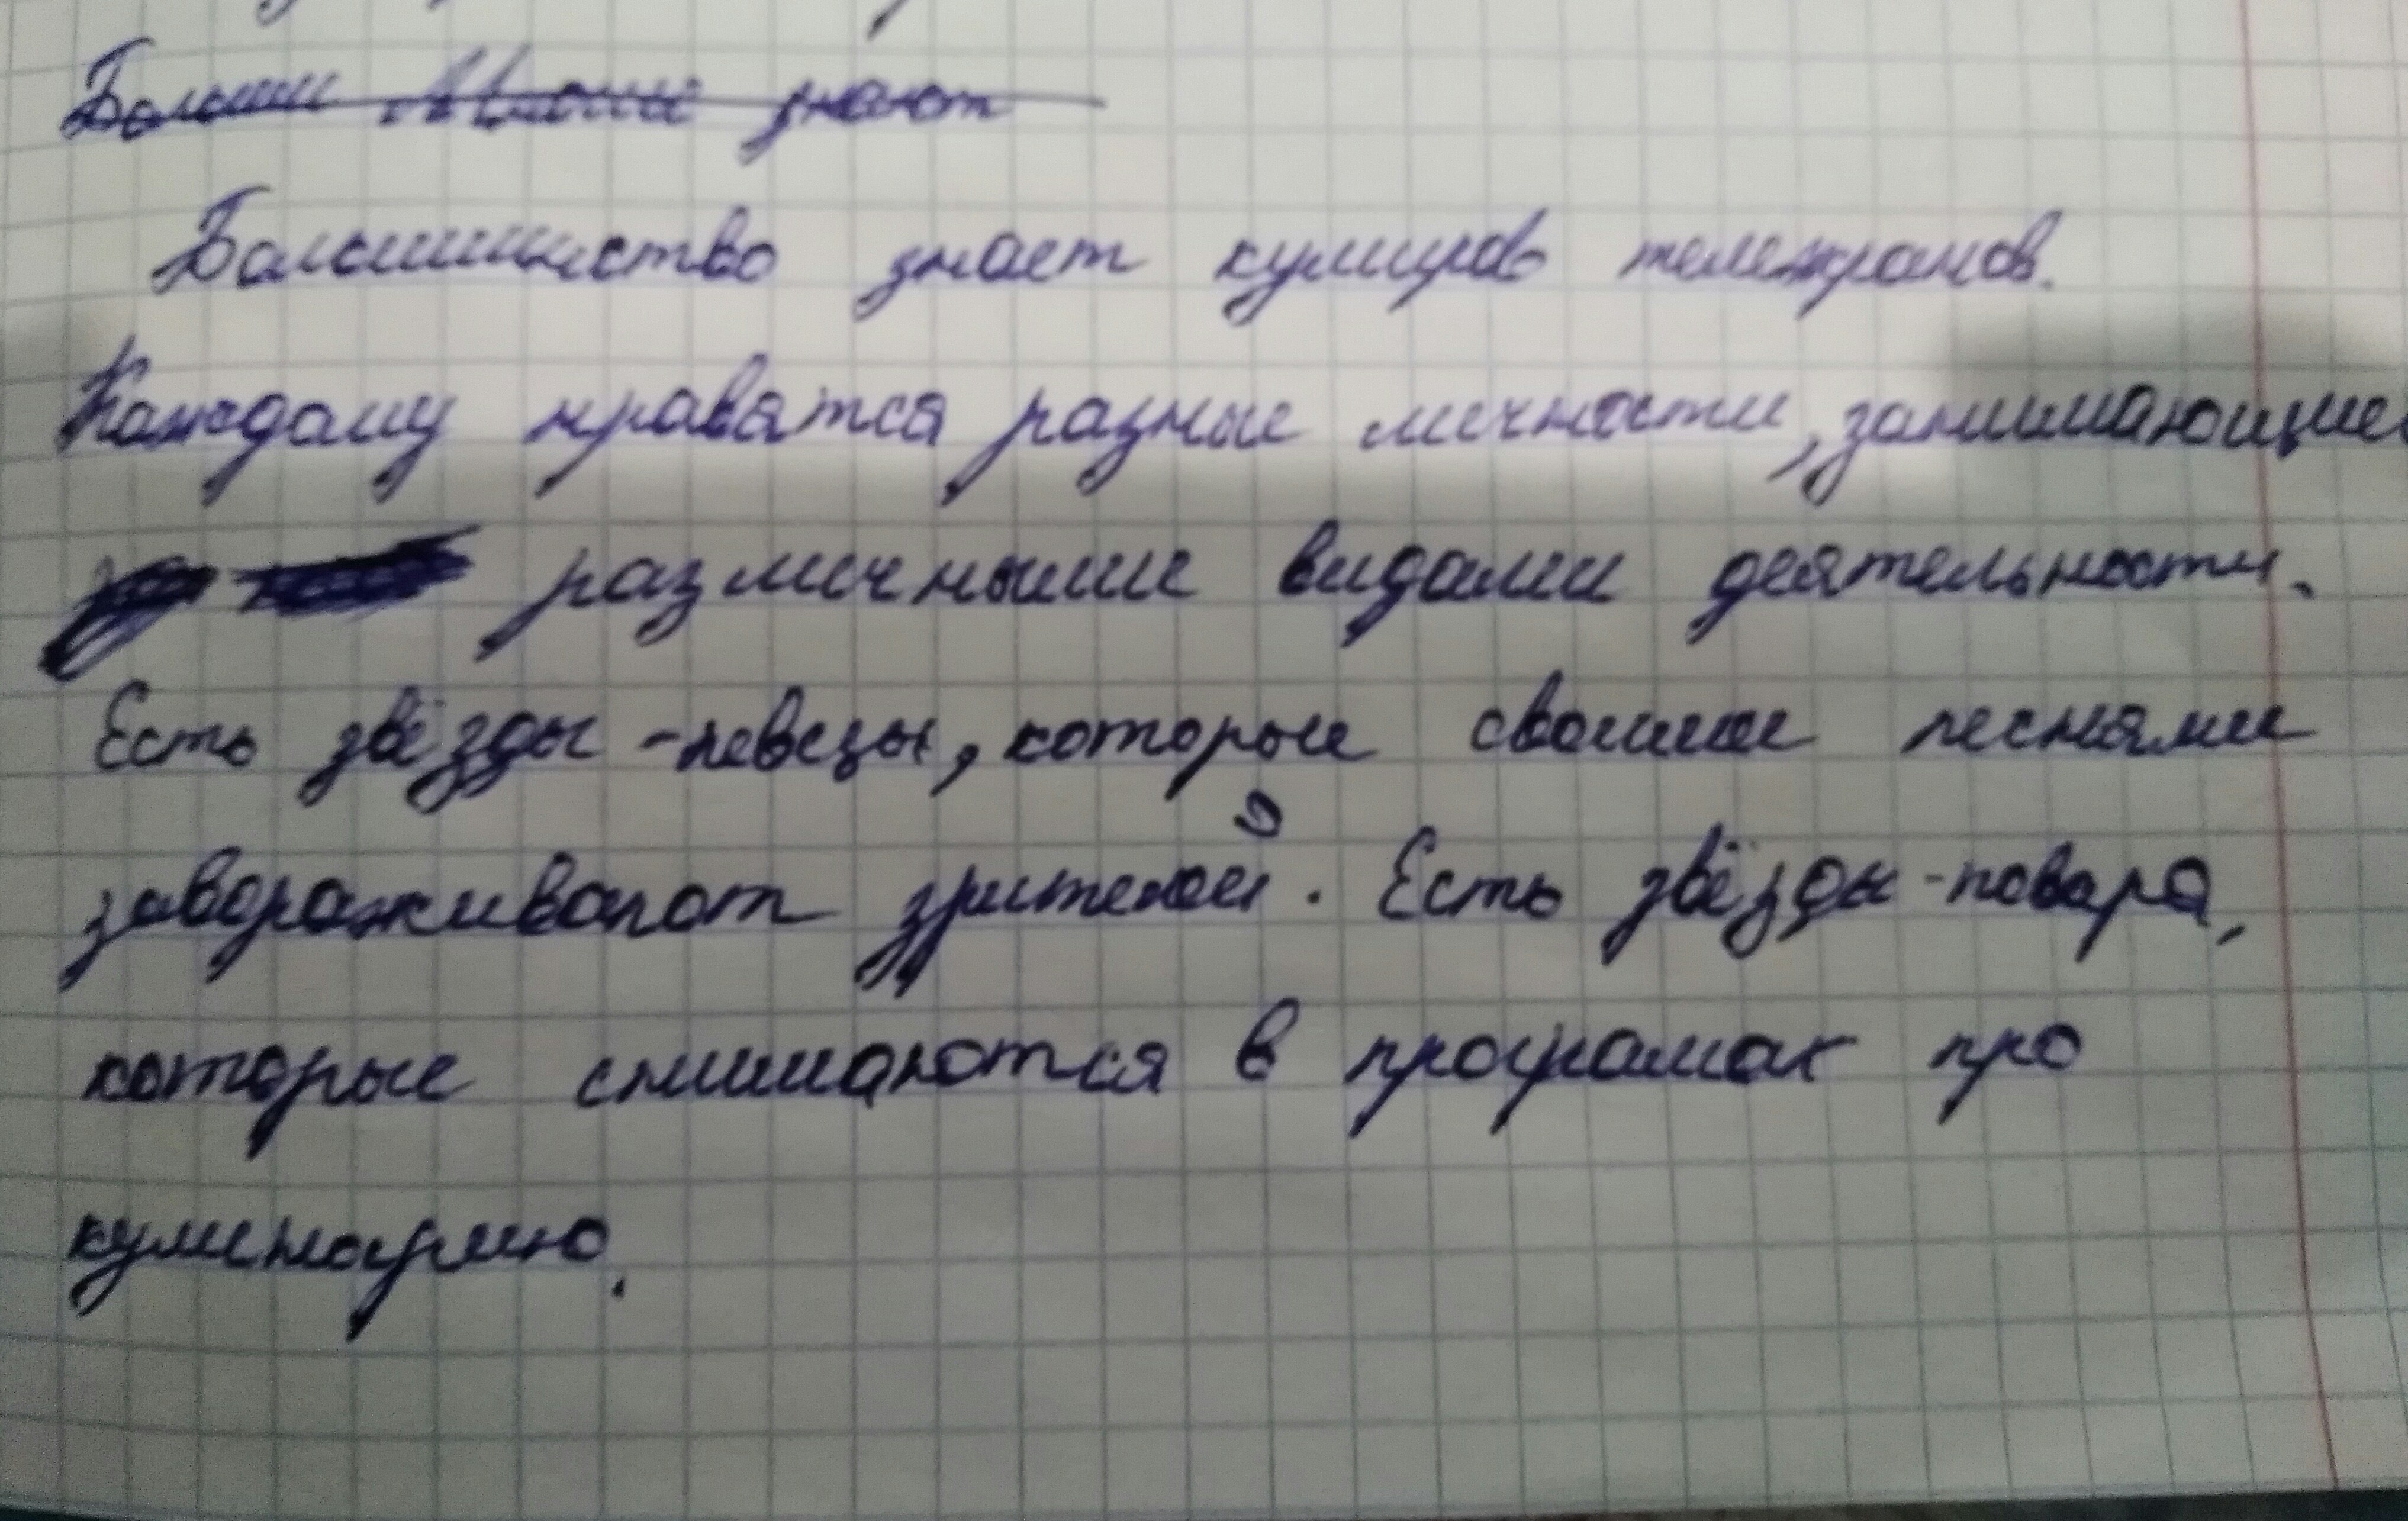 Большинство знает кумиров телеэкранов.
Каждому нравятся разные личности, занимающие
различными видами деятельности.
Есть звёзды-певцы, которые своими песнями
завораживают зрителей. Есть звёзды-повара,
которые снимаются в програмах про
кулинарию.